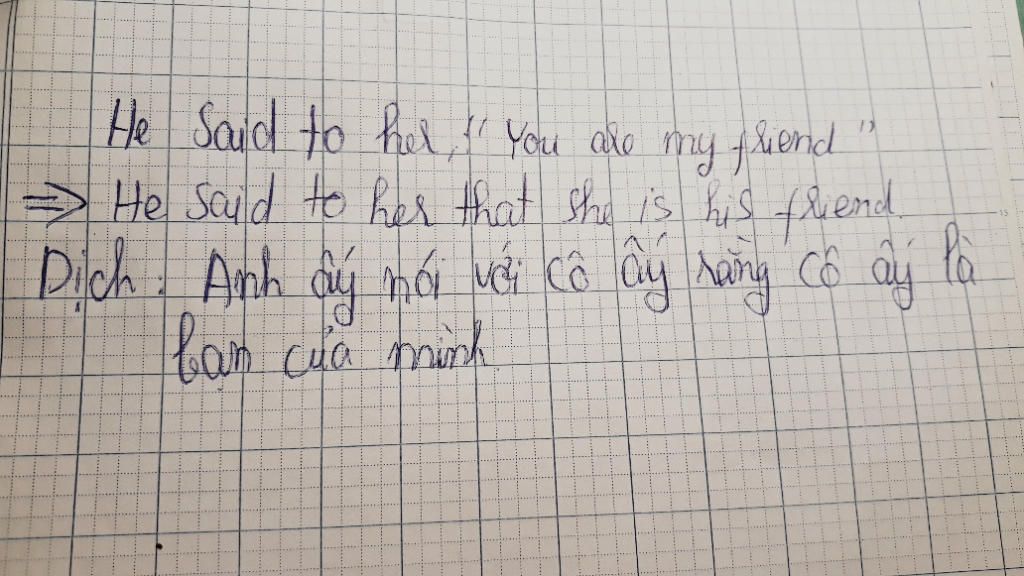 He Said to her, "You are my friend"
⇒ He Said to her that she is his friend.
Dịch: Anh ấy nói với cô ấy rằng cô ấy là
bạn của mình.